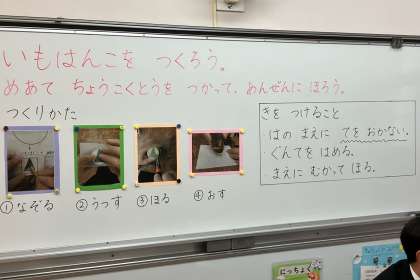 いもはんこを つくろう。
めあて ちょうこくとうを つかって、あんぜんに ほろう。
つくりかた
①なぞる
②うつす
③ほる
④おす
きを つけること
・はの まえに てを おかない。
・ぐんてを はめる。
・まえに むかって ほる。
にっちょく